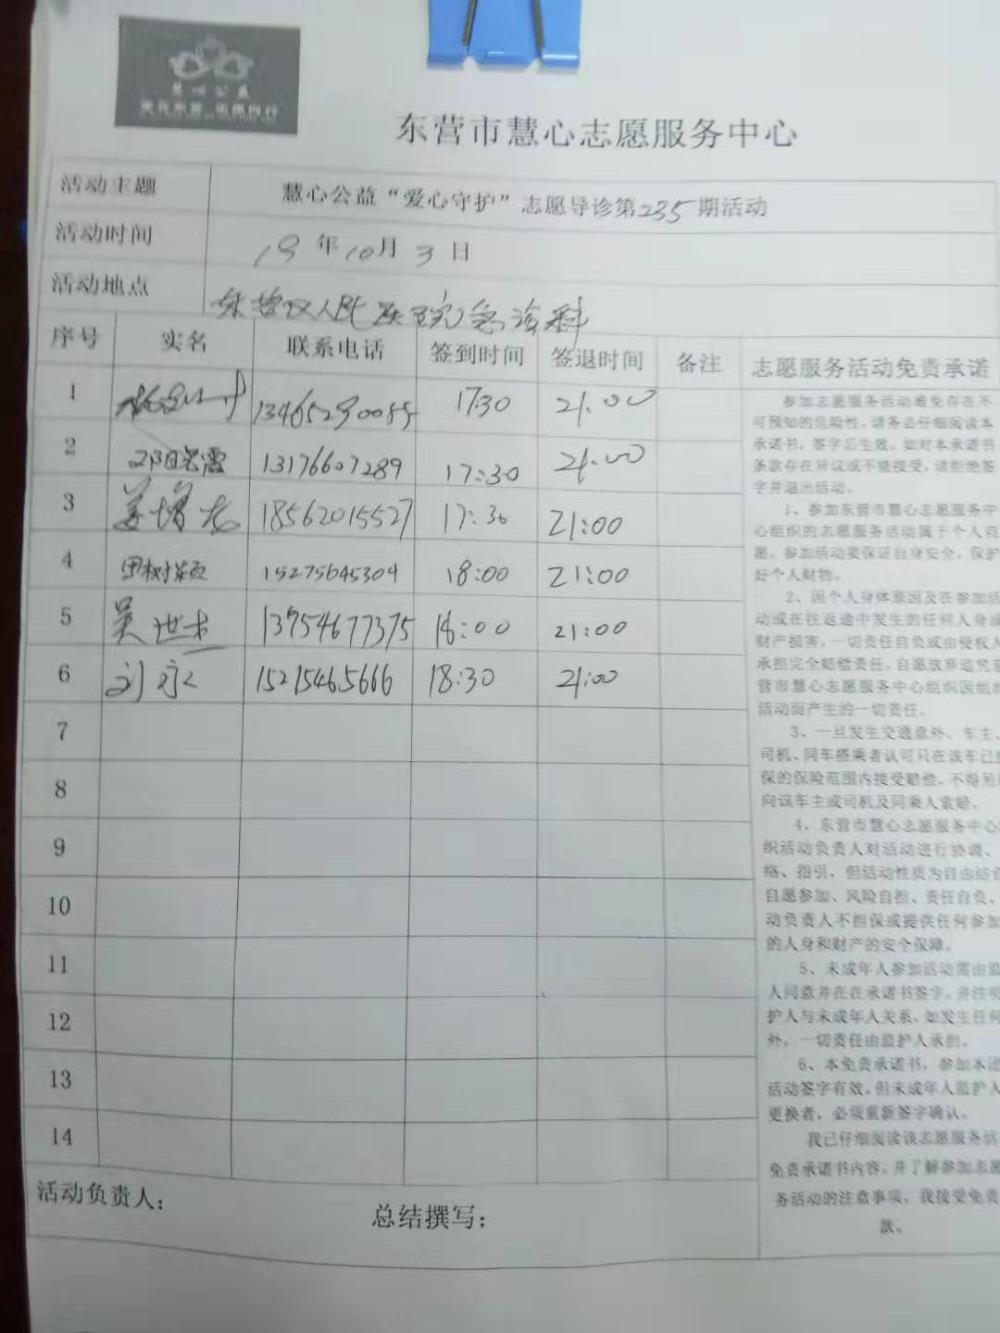 慧心公益
东营市慧心志愿服务中心
活动主题 慧心公益“爱心守护”志愿导诊第235期活动
活动时间 19年10月3日
活动地点 东营区人民医院急诊科
序号 实名 联系电话 签到时间 签退时间 备注
1 13465290085 17:30 21:00
2 13176607289 17:30 21:00
3 18562015527 17:30 21:00
4 田树颖 15275645304 18:00 21:00
5 吴世杰 13954677375 18:00 21:00
6 刘永 15215465666 18:30 21:00
7
8
9
10
11
12
13
14
活动负责人：
总结撰写：
志愿服务活动免责承诺
参加志愿服务活动难免存在不
可预知的危险性，请务必仔细阅读本
承诺书，签字后生效。如对本承诺书
条款存在异议或不能接受，请拒绝签
字并退出活动。
1、参加东营市慧心志愿服务中
心组织的志愿服务活动属于个人自
愿，参加活动要保证自身安全，保护
好个人财物。
2、因个人身体原因及在参加活
动或在往返途中发生的任何人身或
财产损害，一切责任自负或由侵权人
承担完全赔偿责任，自愿放弃追究东
营市慧心志愿服务中心组织因组织
活动而产生的一切责任。
3、一旦发生交通意外，车主、
司机、同车搭乘者认可只在该车已投
保的保险范围内接受赔偿，不得另行
向该车主或司机及同乘人索赔。
4、东营市慧心志愿服务中心组
织活动负责人对活动进行协调、联
络、指引，但活动性质为自由结合、
自愿参加、风险自担、责任自负。活
动负责人不担保或提供任何参加者
的人身和财产的安全保障。
5、未成年人参加活动需由监护
人同意并在在承诺书签字，并注明监
护人与未成年人关系，如发生任何意
外，一切责任由监护人承担。
6、本免责承诺书，参加本团
活动签字有效，但未成年人监护人
更换者，必须重新签字确认。
我已仔细阅读该志愿服务活
免责承诺书内容，并了解参加志愿
务活动的注意事项，我接受免责
款。